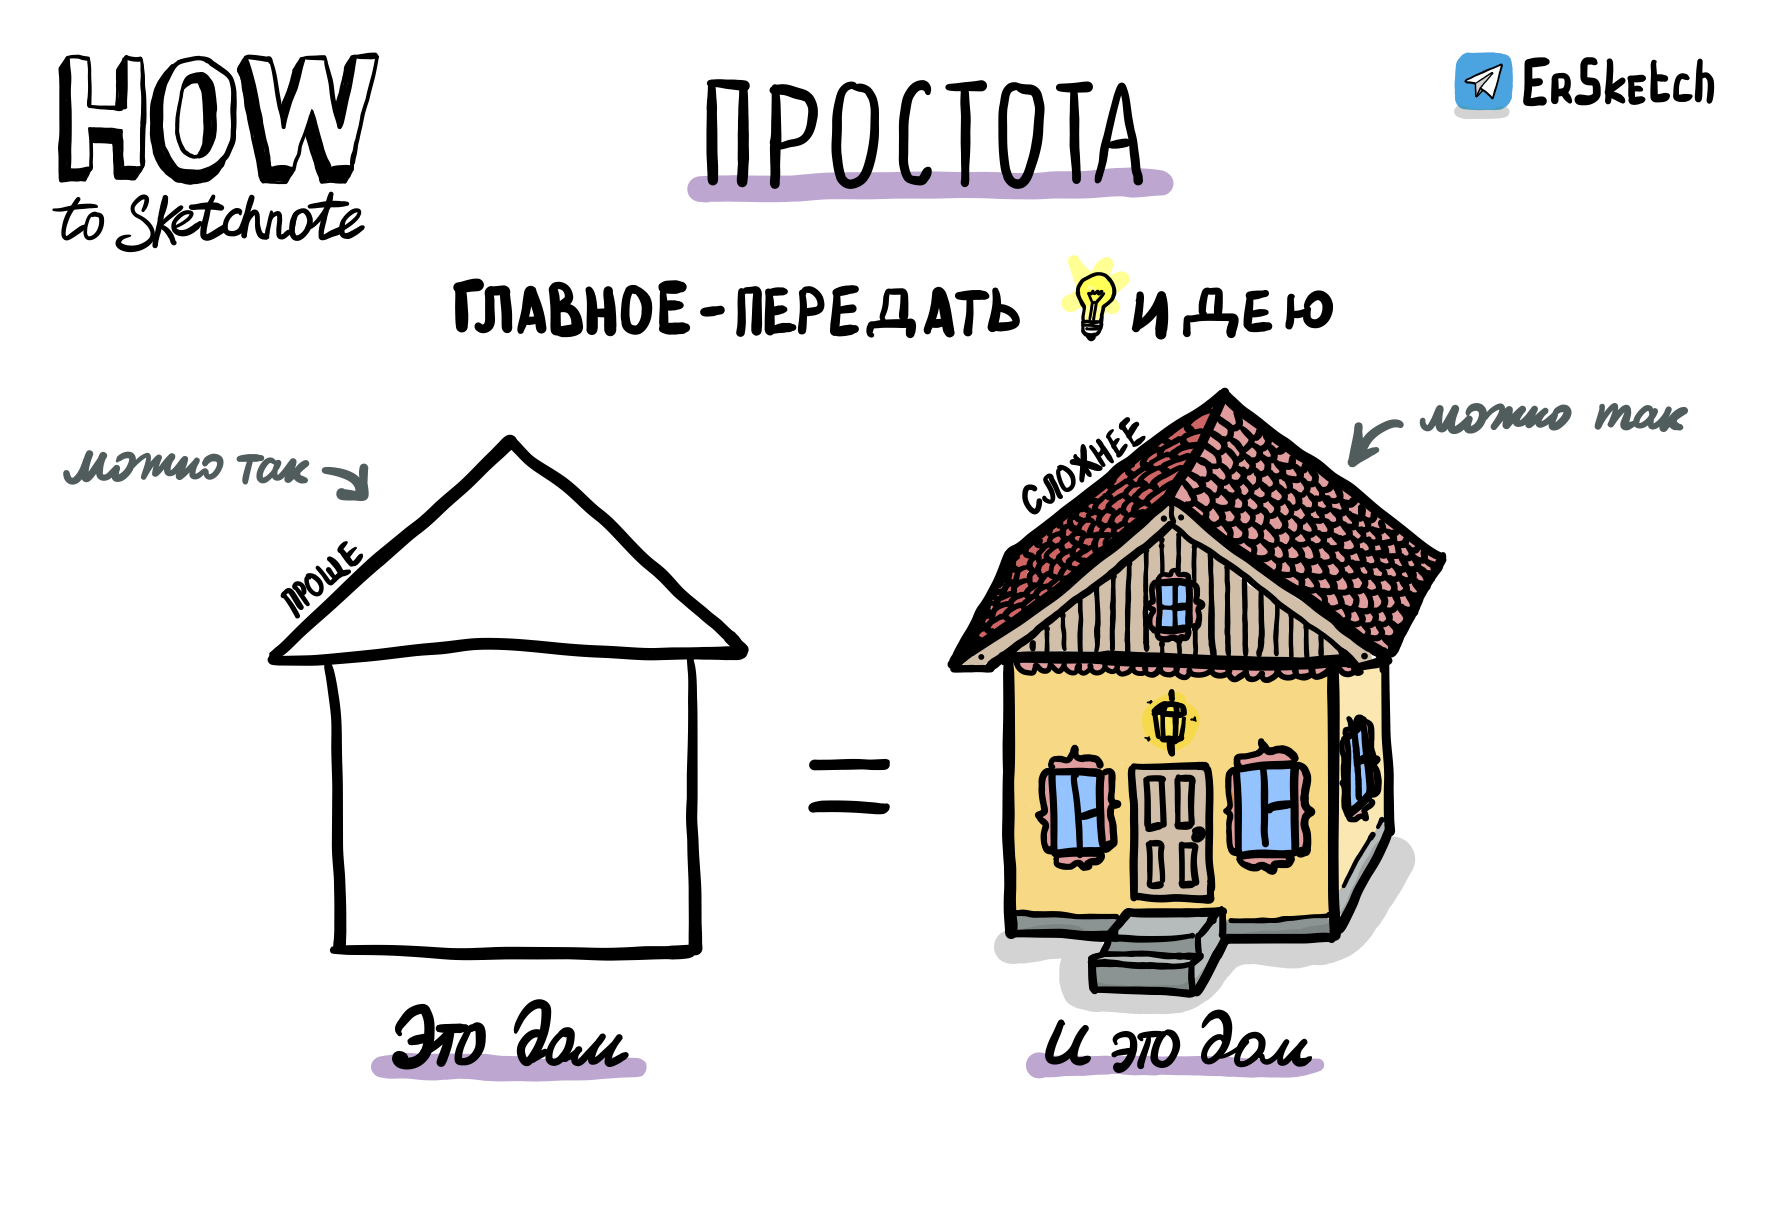 HOW
to Sketchnote
ПРОСТОТА
ErSketch
ГЛАВНОЕ-ПЕРЕДАТЬ ИДЕЮ
можно так
ПРОЩЕ
СЛОЖНЕЕ
можно так
Это дом
И это дом